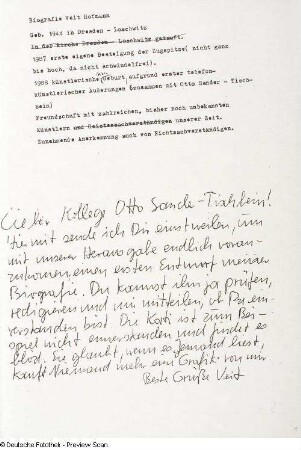 Biografie Veit Hofmann
Geb. 1944 in Dresden - Loschwitz
in der Kirche Dresden - Loschwitz getauft.
1957 erste eigene Besteigung der Zugspitze( nicht ganz
bis hoch, da nicht schwindelfrei).
1988 künstlerische Geburt aufgrund erster telefon-
künstlerischer Äußerungen (zusammen mit Otto Sander - Tisch-
bein)
Freundschaft mit zahlreichen, bisher noch unbekannten
Künstlern und Geistessachverständigen unserer Zeit.
Zunehmende Anerkennung auch von Nichtsachverständigen.
Lieber Kollege Otto Sander-Tischbein!
Hiermit sende ich Dir einstweilen, um
mit unserer Herausgabe endlich voran-
zukommen, einen ersten Entwurf meiner
Biografie. Du kannst ihn ja prüfen,
redigieren und mir mitteilen, ob Du ein-
verstanden bist. Die Kati ist zum Bei-
spiel nicht einverstanden und findet es
blöd. Sie glaubt, wenn es jemand liest,
kauft niemand mehr eine Grafik von mir
Beste Grüße Veit
© Deutsche Fotothek - Preview Scan